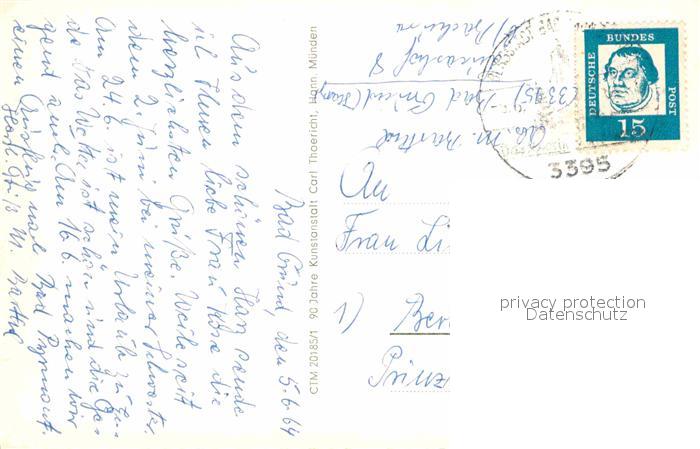 Bad Grund, den 5.6.64
Aus dem schönen Harz sende
ich Ihnen liebe Frau die
herzlichsten Grüße. Weile seit
dem 2. Juni bei meiner Schwester.
Am 24.6. ist mein Urlaub zu En-
de. Das Wetter ist schön und die Ge-
gend auch. Am 16.6. machen wir
einen nach Bad Pyrmont.
Herzl. Grüße M.
CTM 20185/1 90 Jahre Kunstanstalt Carl Thoericht, Hann. Münden
Abs. M.
(3395) Bad Grund (Harz)
b/
DEUTSCHE
BUNDES
POST
15
3395
An
Frau Li
1) Ber
Prinz
privacy protection
Datenschutz